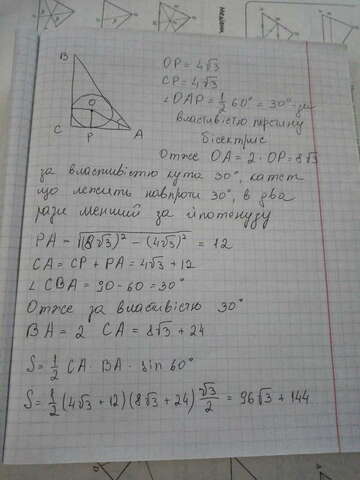 B
O
C
P
A
OP = 4√3
CP = 4√3
∠OAP = 1/2 60° = 30° - за
властивістю перетину
бісектрис
Отже OA = 2 · OP = 8√3
за властивістю кута 30°, катет
що лежить навпроти 30°, в два
рази менший за гіпотенузу
PA = √(8√3)² - (4√3)² = 12
CA = CP + PA = 4√3 + 12
∠ CBA = 90 - 60 = 30°
Отже за властивістю 30°
BA = 2 CA = 8√3 + 24
S = 1/2 CA · BA · sin 60°
S = 1/2 (4√3 + 12)(8√3 + 24) √3/2 = 96√3 + 144